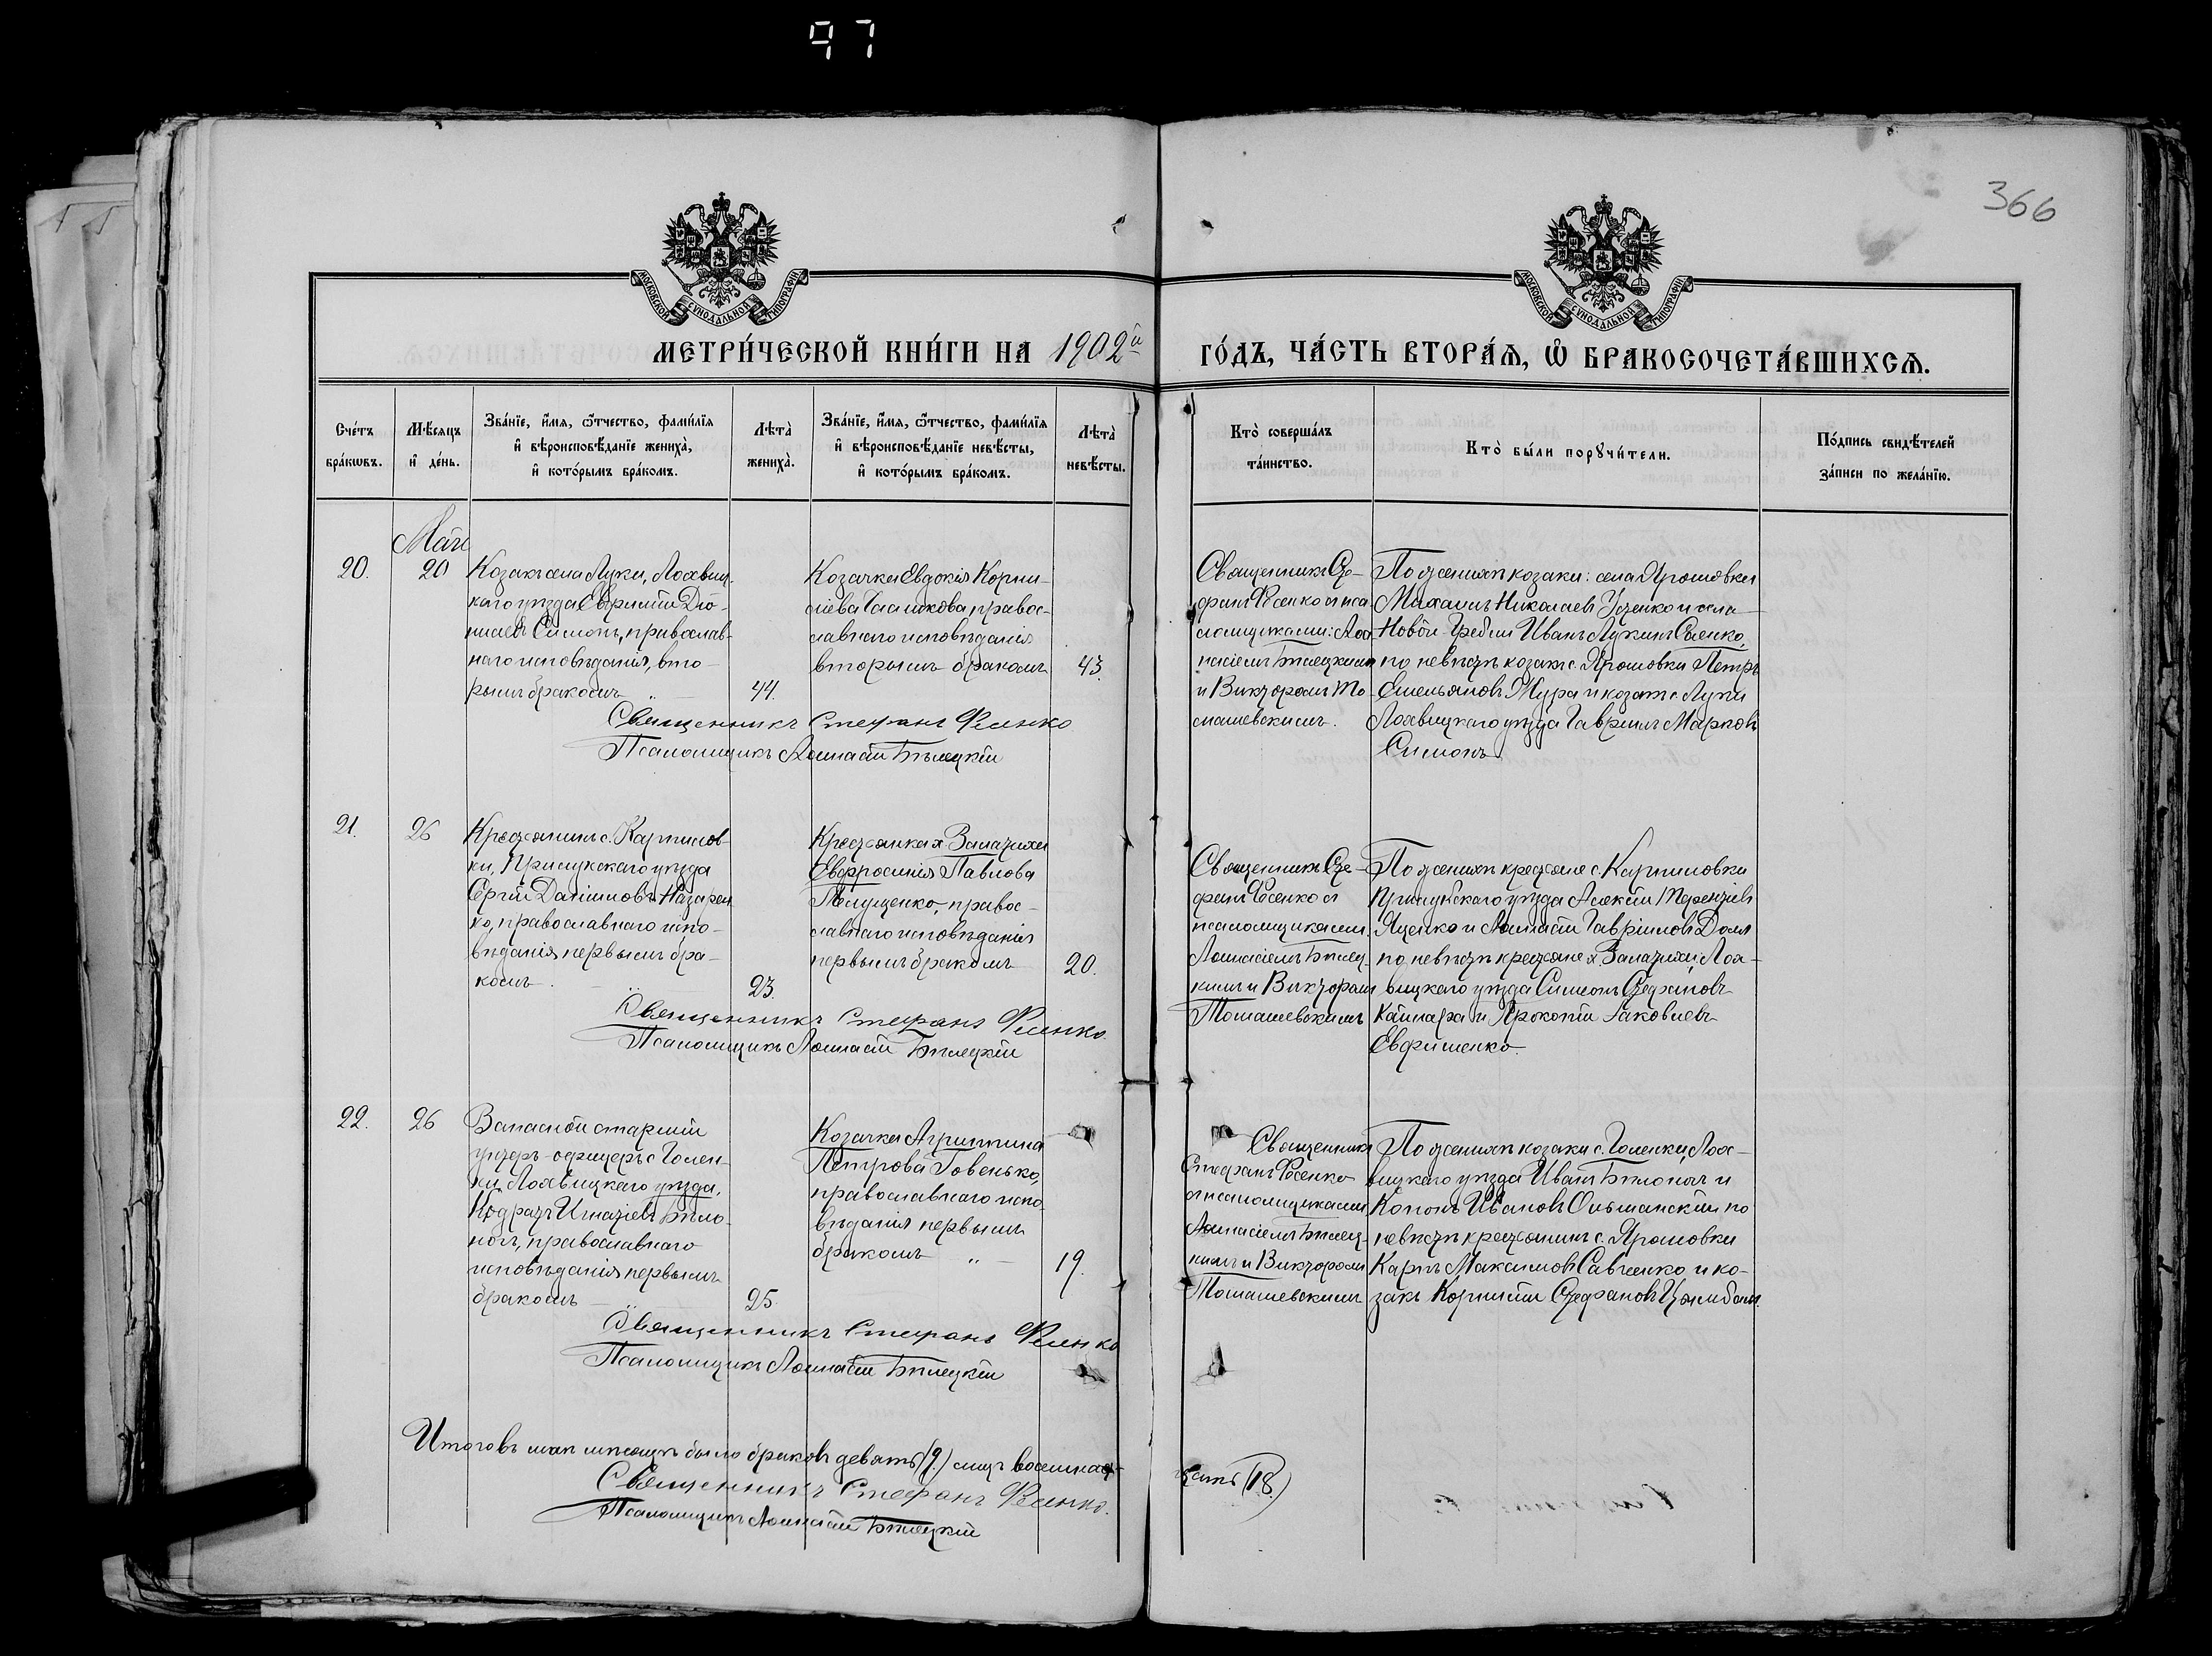 97
366
МОСКОВСКОЙ СѴНОДАЛЬНОЙ ТИПОГРАФІИ
МОСКОВСКОЙ СѴНОДАЛЬНОЙ ТИПОГРАФІИ
МЕТРИ́ЧЕСКОЙ КНИ́ГИ НА 1902й ГО́ДЪ, ЧА́СТЬ ВТОРА́Я, Ѽ БРАКОСОЧЕТА́ВШИХСѦ.
Сче́тъ бра́кѡвъ.
Мѣ́сяцъ и҆ де́нь.
Зва́нїе, и҆́мя, ѻ҆́тчество, фами́лїя
и҆ вѣроисповѣ́данїе жениха̀,
и҆ кото́рымъ бра́комъ.
Лѣта̀ жениха̀.
Зва́нїе, и҆́мя, ѻ҆́тчество, фами́лїя
и҆ вѣроисповѣ́данїе невѣ́сты,
и҆ кото́рымъ бра́комъ.
Лѣта̀ невѣ́сты.
Кто̀ соверша́лъ та́инство.
Кто̀ бы́ли порꙋчи́тели.
По́дпись свидѣ́телей за́писи по жела́нїю.
Май
20.
20
Козакъ села Луки, Лохвиц-
каго уѣзда Евфимій Діо-
нисіевъ Симонъ, православ-
наго исповѣданія, вто-
рымъ бракомъ
44.
Козачка Евдокія Корни-
ліева правос-
лавнаго исповѣданія
вторымъ бракомъ
43.
Священникъ Сте-
фанъ Ѳеенко съ пса-
ломщиками: Аѳа-
насіемъ Бѣлецкимъ
и Викторомъ То-
машевскимъ.
По женихѣ козаки: села Ярошовки
Михаилъ Николаевъ Уценко и села
Новой-Гребли Иванъ Лукинъ
по невѣстѣ козакъ с. Ярошовки Петръ
Емельяновъ Жура и козакъ с. Луки
Лохвицкаго уѣзда Гавріилъ Марковъ
Симонъ
Священникъ Стефанъ Ѳеенко
Псаломщикъ Аѳанасій Бѣлецкій
21.
26
Крестьянинъ с. Карпилов-
ки, Прилукскаго уѣзда
Сергій Даніиловъ Назарен-
ко, православнаго испо-
вѣданія первымъ бра-
комъ
23.
Крестьянка х. Запатихи
Евфросинія Павлова
правос-
лавнаго исповѣданія
первымъ бракомъ
20.
Священникъ Сте-
фанъ Ѳеенко съ
псаломщиками.
Аѳанасіемъ Бѣлец-
кимъ и Викторомъ
Томашевскимъ
По женихѣ крестьяне с. Карпиловки
Прилукскаго уѣзда Алексій Терентіевъ
Яценко и Аѳанасій Гавріиловъ
по невѣстѣ крестьяне х. Запатихи, Лох-
вицкаго уѣзда Симеонъ Стефановъ
и Прокопій Іаковлевъ
Евфименко.
Священникъ Стефанъ Ѳеенко.
Псаломщикъ Аѳанасій Бѣлецкій
22.
26
Запасной старшій
унтеръ-офицеръ с. Голен-
ки, Лохвицкаго уѣзда,
Кодратъ Игнатіевъ Бѣло-
ногъ, православнаго
исповѣданія первымъ
бракомъ
25.
Козачка Агриппина
Петрова Говенько,
православнаго испо-
вѣданія первымъ
бракомъ
19.
Священникъ
Стефанъ Ѳеенко
съ псаломщиками
Аѳанасіемъ Бѣлец-
кимъ и Викторомъ
Томашевскимъ
По женихѣ козаки с. Голенки, Лох-
вицкаго уѣзда Иванъ Бѣлоногъ и
Кононъ Ивановъ Ольшанскій по
невѣстѣ крестьянинъ с. Ярошовки
Карпъ Максимовъ Савченко и ко-
закъ Корнилій Стефановъ Цымбалъ.
Священникъ Стефанъ Ѳеенко
Псаломщикъ Аѳанасій Бѣлецкій
Итого въ маѣ мѣсяцѣ было браковъ девять (9.) лицъ восемнад-
цать (18.)
Священникъ Стефанъ Ѳеенко.
Псаломщикъ Аѳанасій Бѣлецкій